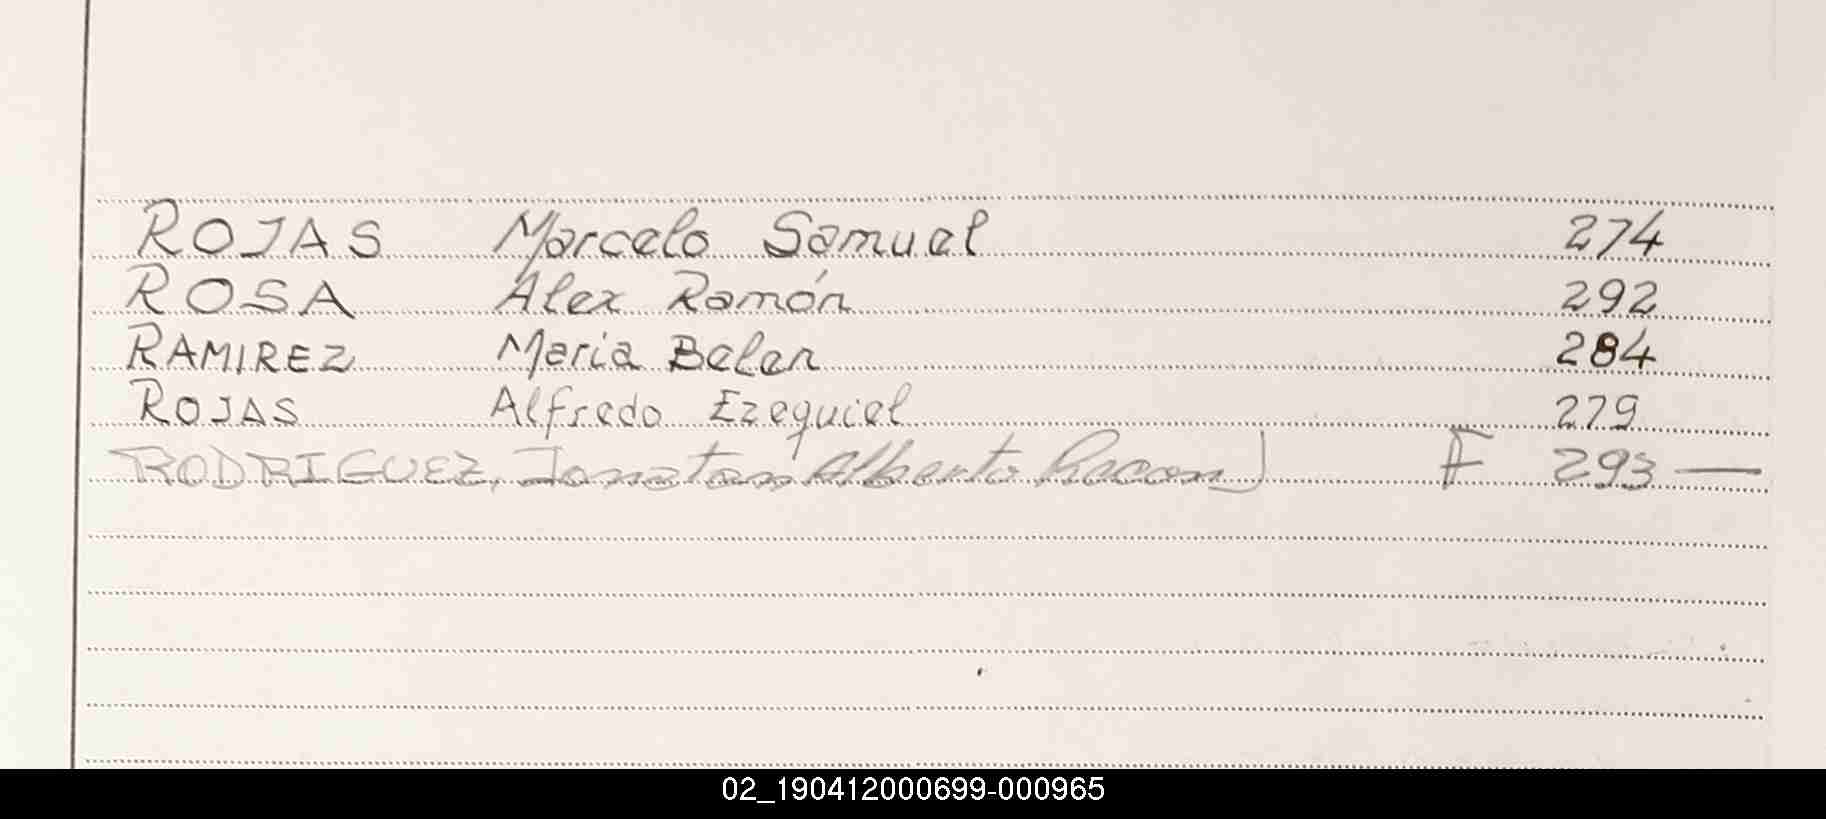 ROJAS Marcelo Samuel 274
ROSA Alex Ramón 292
RAMIREZ Maria Belen 284
ROJAS Alfredo Ezequiel 279
RODRIGUEZ, Jonatan Alberto F 293 —
02_190412000699-000965